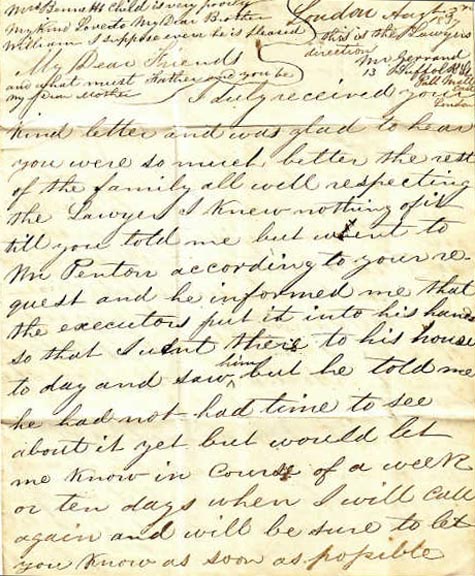 Mrs Bennett Child is very poorly
My Kind Love to My Dear Brother
William I suppose even he is pleased
and what must Father and you be
my dear Mother
London Augt 3d
37
this is the Lawyers
direction
Mr Gerrand
13 Suffolk St
Pall Mall
East
London
My Dear Friends
I duly received your
kind letter and was glad to hear
you were so much better the rest
of the family all well respecting
the Lawyer I knew nothing of it
till you told me but went to
Mr Penton according to your re-
quest and he informed me that
the executors put it into his hands
so that I went there to his house
to day and saw him but he told me
he had not had time to see
about it yet but would let
me know in course of a week
or ten days when I will call
again and will be sure to let
you know as soon as possible